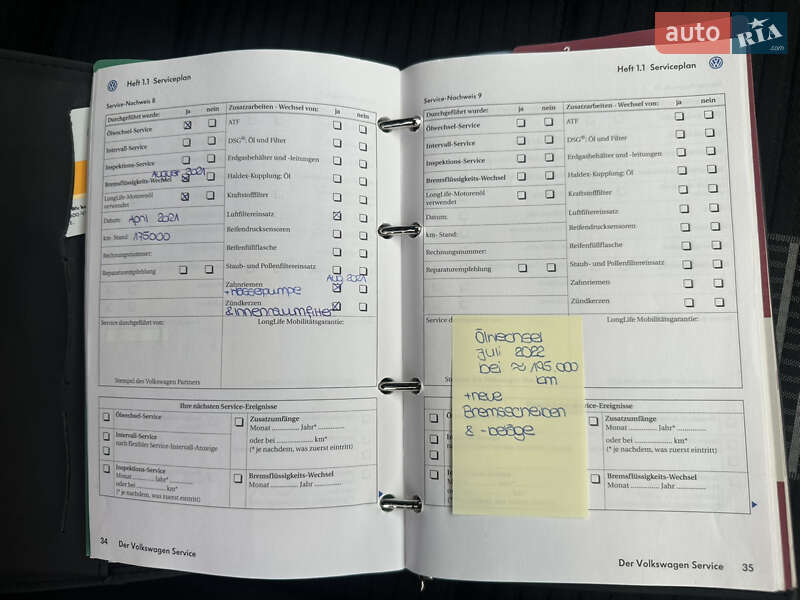 auto RIA .com
2
Heft 1.1 Serviceplan
Service-Nachweis 8
Durchgeführt wurde: ja nein
Ölwechsel-Service
Intervall-Service
Inspektions-Service
August 2021
Bremsflüssigkeits-Wechsel
LongLife-Motorenöl
verwendet
Datum: April 2021
km- Stand: 175000
Rechnungsnummer:
Reparaturempfehlung
Service durchgeführt von:
Stempel des Volkswagen Partners
Zusatzarbeiten - Wechsel von: ja nein
ATF
DSG®: Öl und Filter
Erdgasbehälter und -leitungen
Haldex-Kupplung: Öl
Kraftstofffilter
Luftfiltereinsatz
Reifendrucksensoren
Reifenfüllflasche
Staub- und Pollenfiltereinsatz
Aug 2021
Zahnriemen
+ Wasserpumpe
Zündkerzen
& Innenraumfilter
LongLife Mobilitätsgarantie:
Ihre nächsten Service-Ereignisse
Ölwechsel-Service
Intervall-Service
nach flexibler Service-Intervall-Anzeige
Inspektions-Service
Monat ............ Jahr* ............
oder bei ............ km*
(* je nachdem, was zuerst eintritt)
Zusatzumfänge
Monat ............ Jahr* ............
oder bei ............ km*
(* je nachdem, was zuerst eintritt)
Bremsflüssigkeits-Wechsel
Monat ............ Jahr ............
34 Der Volkswagen Service
Heft 1.1 Serviceplan
Service-Nachweis 9
Durchgeführt wurde: ja nein
Ölwechsel-Service
Intervall-Service
Inspektions-Service
Bremsflüssigkeits-Wechsel
LongLife-Motorenöl
verwendet
Datum:
km- Stand:
Rechnungsnummer:
Reparaturempfehlung
Service d
Zusatzarbeiten - Wechsel von: ja nein
ATF
DSG®: Öl und Filter
Erdgasbehälter und -leitungen
Haldex-Kupplung: Öl
Kraftstofffilter
Luftfiltereinsatz
Reifendrucksensoren
Reifenfüllflasche
Staub- und Pollenfiltereinsatz
Zahnriemen
Zündkerzen
LongLife Mobilitätsgarantie:
Ölwechsel
Juli 2022
bei ≈ 195 000
km
+ neue
Bremsscheiben
& -beläge
e-Ereignisse
Zusatzumfänge
Monat ............ Jahr* ............
oder bei ............ km*
(* je nachdem, was zuerst eintritt)
Bremsflüssigkeits-Wechsel
Monat ............ Jahr ............
Der Volkswagen Service 35